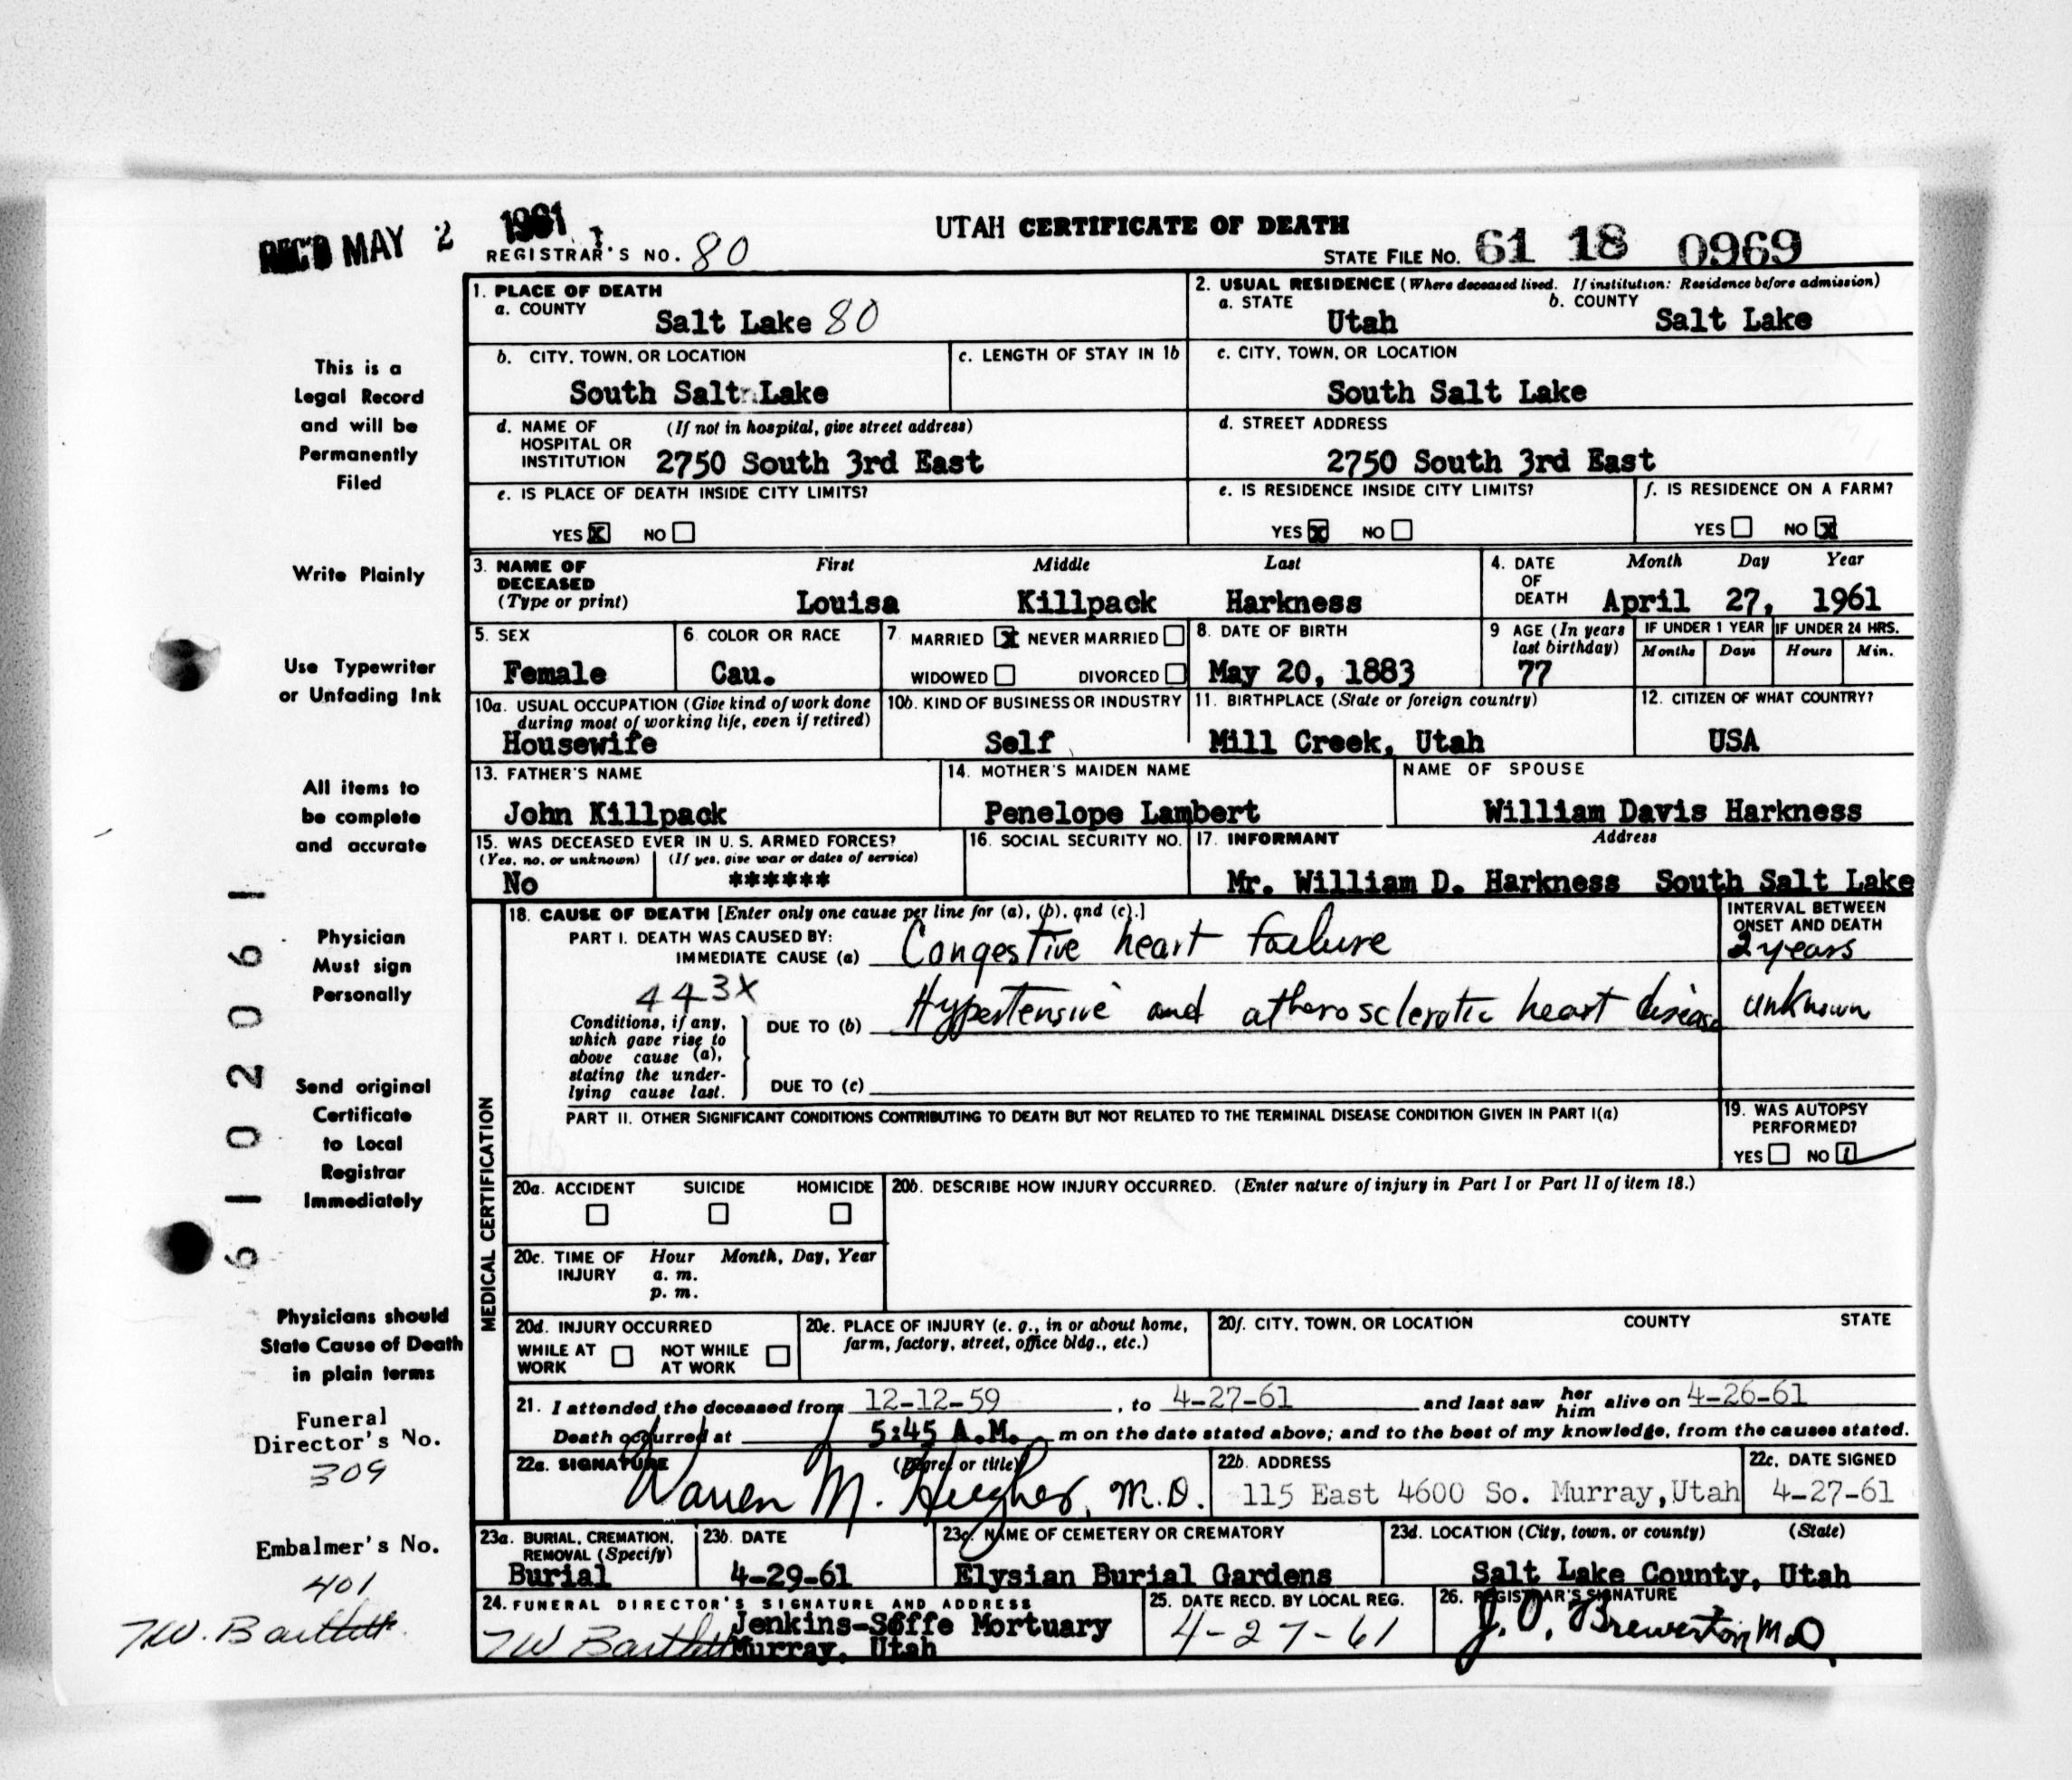 REC'D MAY 2 1961
UTAH CERTIFICATE OF DEATH
REGISTRAR'S NO. 80
STATE FILE NO. 61 18 0969
1. PLACE OF DEATH
a. COUNTY
Salt Lake 80
2. USUAL RESIDENCE (Where deceased lived. If institution: Residence before admission)
a. STATE b. COUNTY
Utah Salt Lake
b. CITY, TOWN, OR LOCATION
South Salt Lake
c. LENGTH OF STAY IN 1b
c. CITY, TOWN, OR LOCATION
South Salt Lake
d. NAME OF HOSPITAL OR INSTITUTION (If not in hospital, give street address)
2750 South 3rd East
d. STREET ADDRESS
2750 South 3rd East
e. IS PLACE OF DEATH INSIDE CITY LIMITS?
YES X NO
e. IS RESIDENCE INSIDE CITY LIMITS?
YES X NO
f. IS RESIDENCE ON A FARM?
YES NO X
3. NAME OF DECEASED (Type or print)
First Middle Last
Louisa Killpack Harkness
4. DATE OF DEATH
Month Day Year
April 27, 1961
5. SEX
Female
6. COLOR OR RACE
Cau.
7. MARRIED X NEVER MARRIED
WIDOWED DIVORCED
8. DATE OF BIRTH
May 20, 1883
9 AGE (In years last birthday)
77
IF UNDER 1 YEAR
Months Days
IF UNDER 24 HRS.
Hours Min.
10a. USUAL OCCUPATION (Give kind of work done during most of working life, even if retired)
Housewife
10b. KIND OF BUSINESS OR INDUSTRY
Self
11. BIRTHPLACE (State or foreign country)
Mill Creek, Utah
12. CITIZEN OF WHAT COUNTRY?
USA
13. FATHER'S NAME
John Killpack
14. MOTHER'S MAIDEN NAME
Penelope Lambert
NAME OF SPOUSE
William Davis Harkness
15. WAS DECEASED EVER IN U. S. ARMED FORCES?
(Yes, no, or unknown) (If yes, give war or dates of service)
No ******
16. SOCIAL SECURITY NO.
17. INFORMANT Address
Mr. William D. Harkness South Salt Lake
MEDICAL CERTIFICATION
18. CAUSE OF DEATH [Enter only one cause per line for (a), (b), and (c).]
PART I. DEATH WAS CAUSED BY:
IMMEDIATE CAUSE (a) Congestive heart failure
INTERVAL BETWEEN ONSET AND DEATH
2 years
443X
Conditions, if any, which gave rise to above cause (a), stating the underlying cause last.
DUE TO (b) Hypertensive and atherosclerotic heart disease unknown
DUE TO (c)
PART II. OTHER SIGNIFICANT CONDITIONS CONTRIBUTING TO DEATH BUT NOT RELATED TO THE TERMINAL DISEASE CONDITION GIVEN IN PART I(a)
19. WAS AUTOPSY PERFORMED?
YES NO
20a. ACCIDENT SUICIDE HOMICIDE
20b. DESCRIBE HOW INJURY OCCURRED. (Enter nature of injury in Part I or Part II of item 18.)
20c. TIME OF INJURY
Hour Month, Day, Year
a. m.
p. m.
20d. INJURY OCCURRED
WHILE AT WORK NOT WHILE AT WORK
20e. PLACE OF INJURY (e. g., in or about home, farm, factory, street, office bldg., etc.)
20f. CITY, TOWN, OR LOCATION COUNTY STATE
21. I attended the deceased from 12-12-59, to 4-27-61 and last saw her him alive on 4-26-61
Death occurred at 5:45 A.M. m on the date stated above; and to the best of my knowledge, from the causes stated.
22a. SIGNATURE (Degree or title)
Warren M. Hughes, M.D.
22b. ADDRESS
115 East 4600 So. Murray, Utah
22c. DATE SIGNED
4-27-61
23a. BURIAL, CREMATION, REMOVAL (Specify)
Burial
23b. DATE
4-29-61
23c. NAME OF CEMETERY OR CREMATORY
Elysian Burial Gardens
23d. LOCATION (City, town, or county) (State)
Salt Lake County, Utah
24. FUNERAL DIRECTOR'S SIGNATURE AND ADDRESS
Jenkins-Soffe Mortuary
TW Bartlett Murray, Utah
25. DATE RECD. BY LOCAL REG.
4-27-61
26. REGISTRAR'S SIGNATURE
J. O. Brewerton, M.D.
This is a
Legal Record
and will be
Permanently
Filed
Write Plainly
Use Typewriter
or Unfading Ink
All items to
be complete
and accurate
Physician
Must sign
Personally
Send original
Certificate
to Local
Registrar
Immediately
Physicians should
State Cause of Death
in plain terms
Funeral
Director's No.
309
Embalmer's No.
401
TW. Bartlett
61 02061